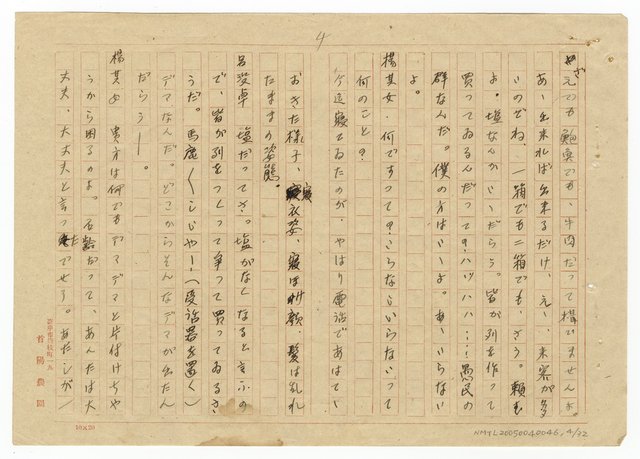 4
んでも鮑魚でも、牛肉だって構ひませんよ。
あゝ出来れば出来るだけ、えゝ、来客が多
いのでね、一箱でも二箱でも、さう。頼む
よ。塩なんかいゝだらう。皆が列を作って
買ってゐるんだって？ハッハハ……愚民の
群なんだ。僕の方はいゝよ。あゝいらない
よ。
楊某女 何ですって？こちらならいらないって
何のこと？
今迄寝てゐたのが、やはり電話であはてゝ
おきた様子、寝衣姿、髪は乱れ
たまゝの姿態。
呂愛卓 塩だってさ。塩がなくなると云ふの
で、皆が列をつくって争って買ってゐるさ
うだ。馬鹿くくしいやー（受話器を置く）
デマなんだ。どこからそんなデマが出たん
だらうー。
楊某女 貴方は何でもデマデマと片付けちゃ
うから困るのよ。石齢だって、あんたは大
丈夫、大丈夫と言ったでせう。あたしが
首陽農園
10×20
NMTL20050040046, 4/22